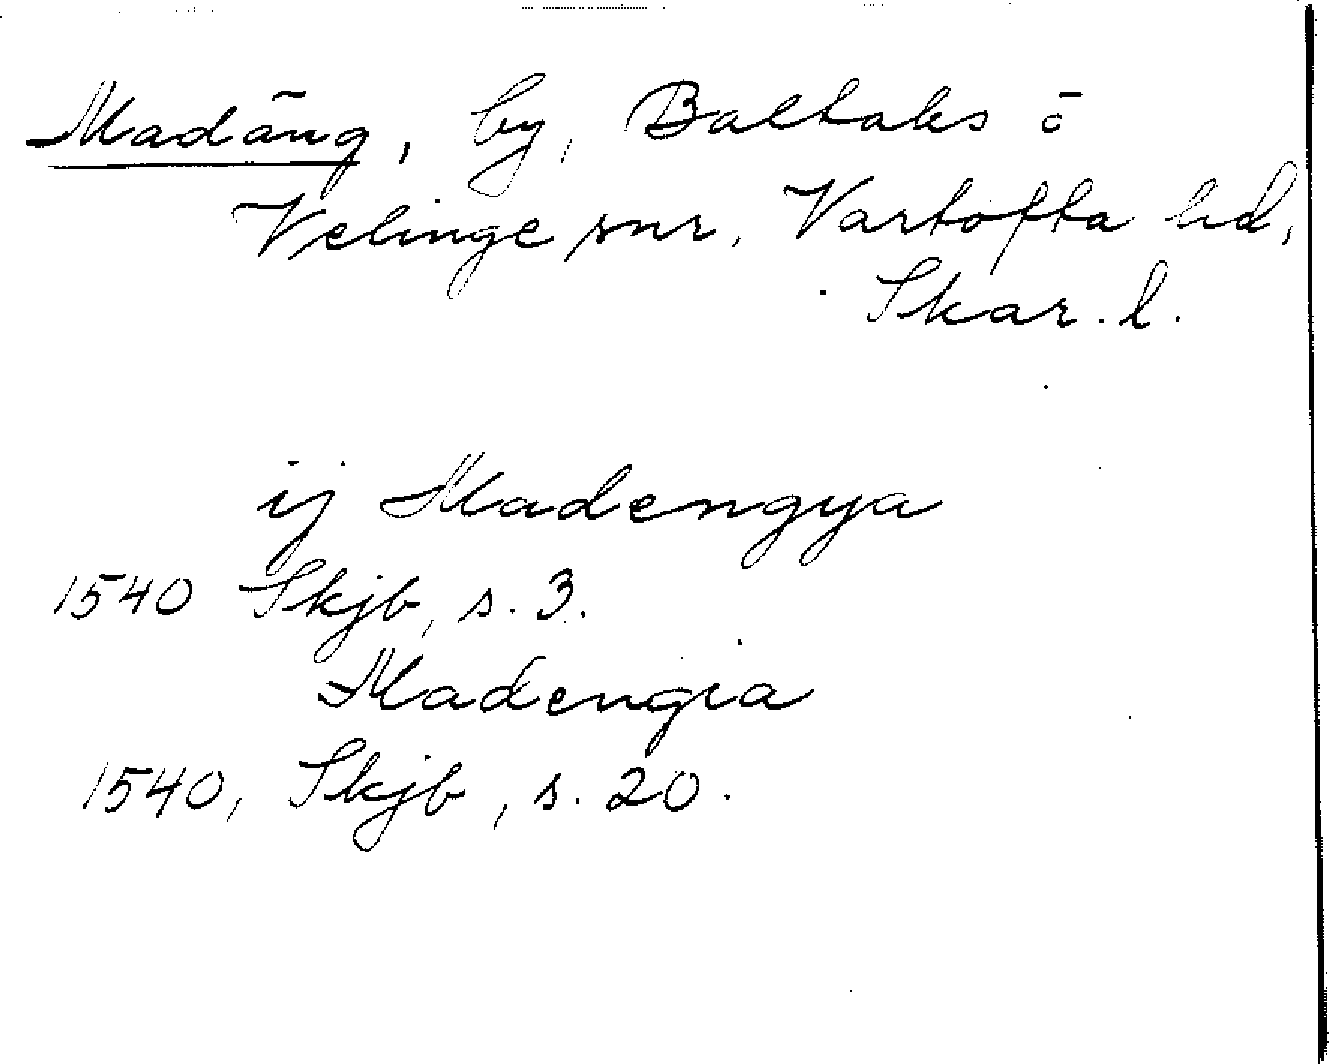 Madäng, by, Baltaks o
Velinge snr, Vartofta hd,
Skar. l.
ij Madengya
1540 Skjb, s. 3.
Madengia
1540, Skjb, s. 20.